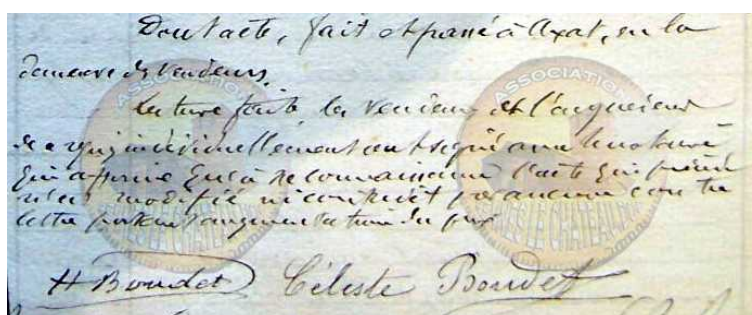 Dont acte, fait et passé à Axat, en la
demeure des vendeurs.
Lecture faite, les vendeurs et l'acquéreur
de ce requis individuellement ont signé avec le notaire
qui affirme qu'à sa connaissance l'acte qui précède
n'est modifié ni contredit par aucune contre
lettre portant augmentation du prix
H Boudet Céleste Boudet
ASSOCIATION
ASSOCIATION